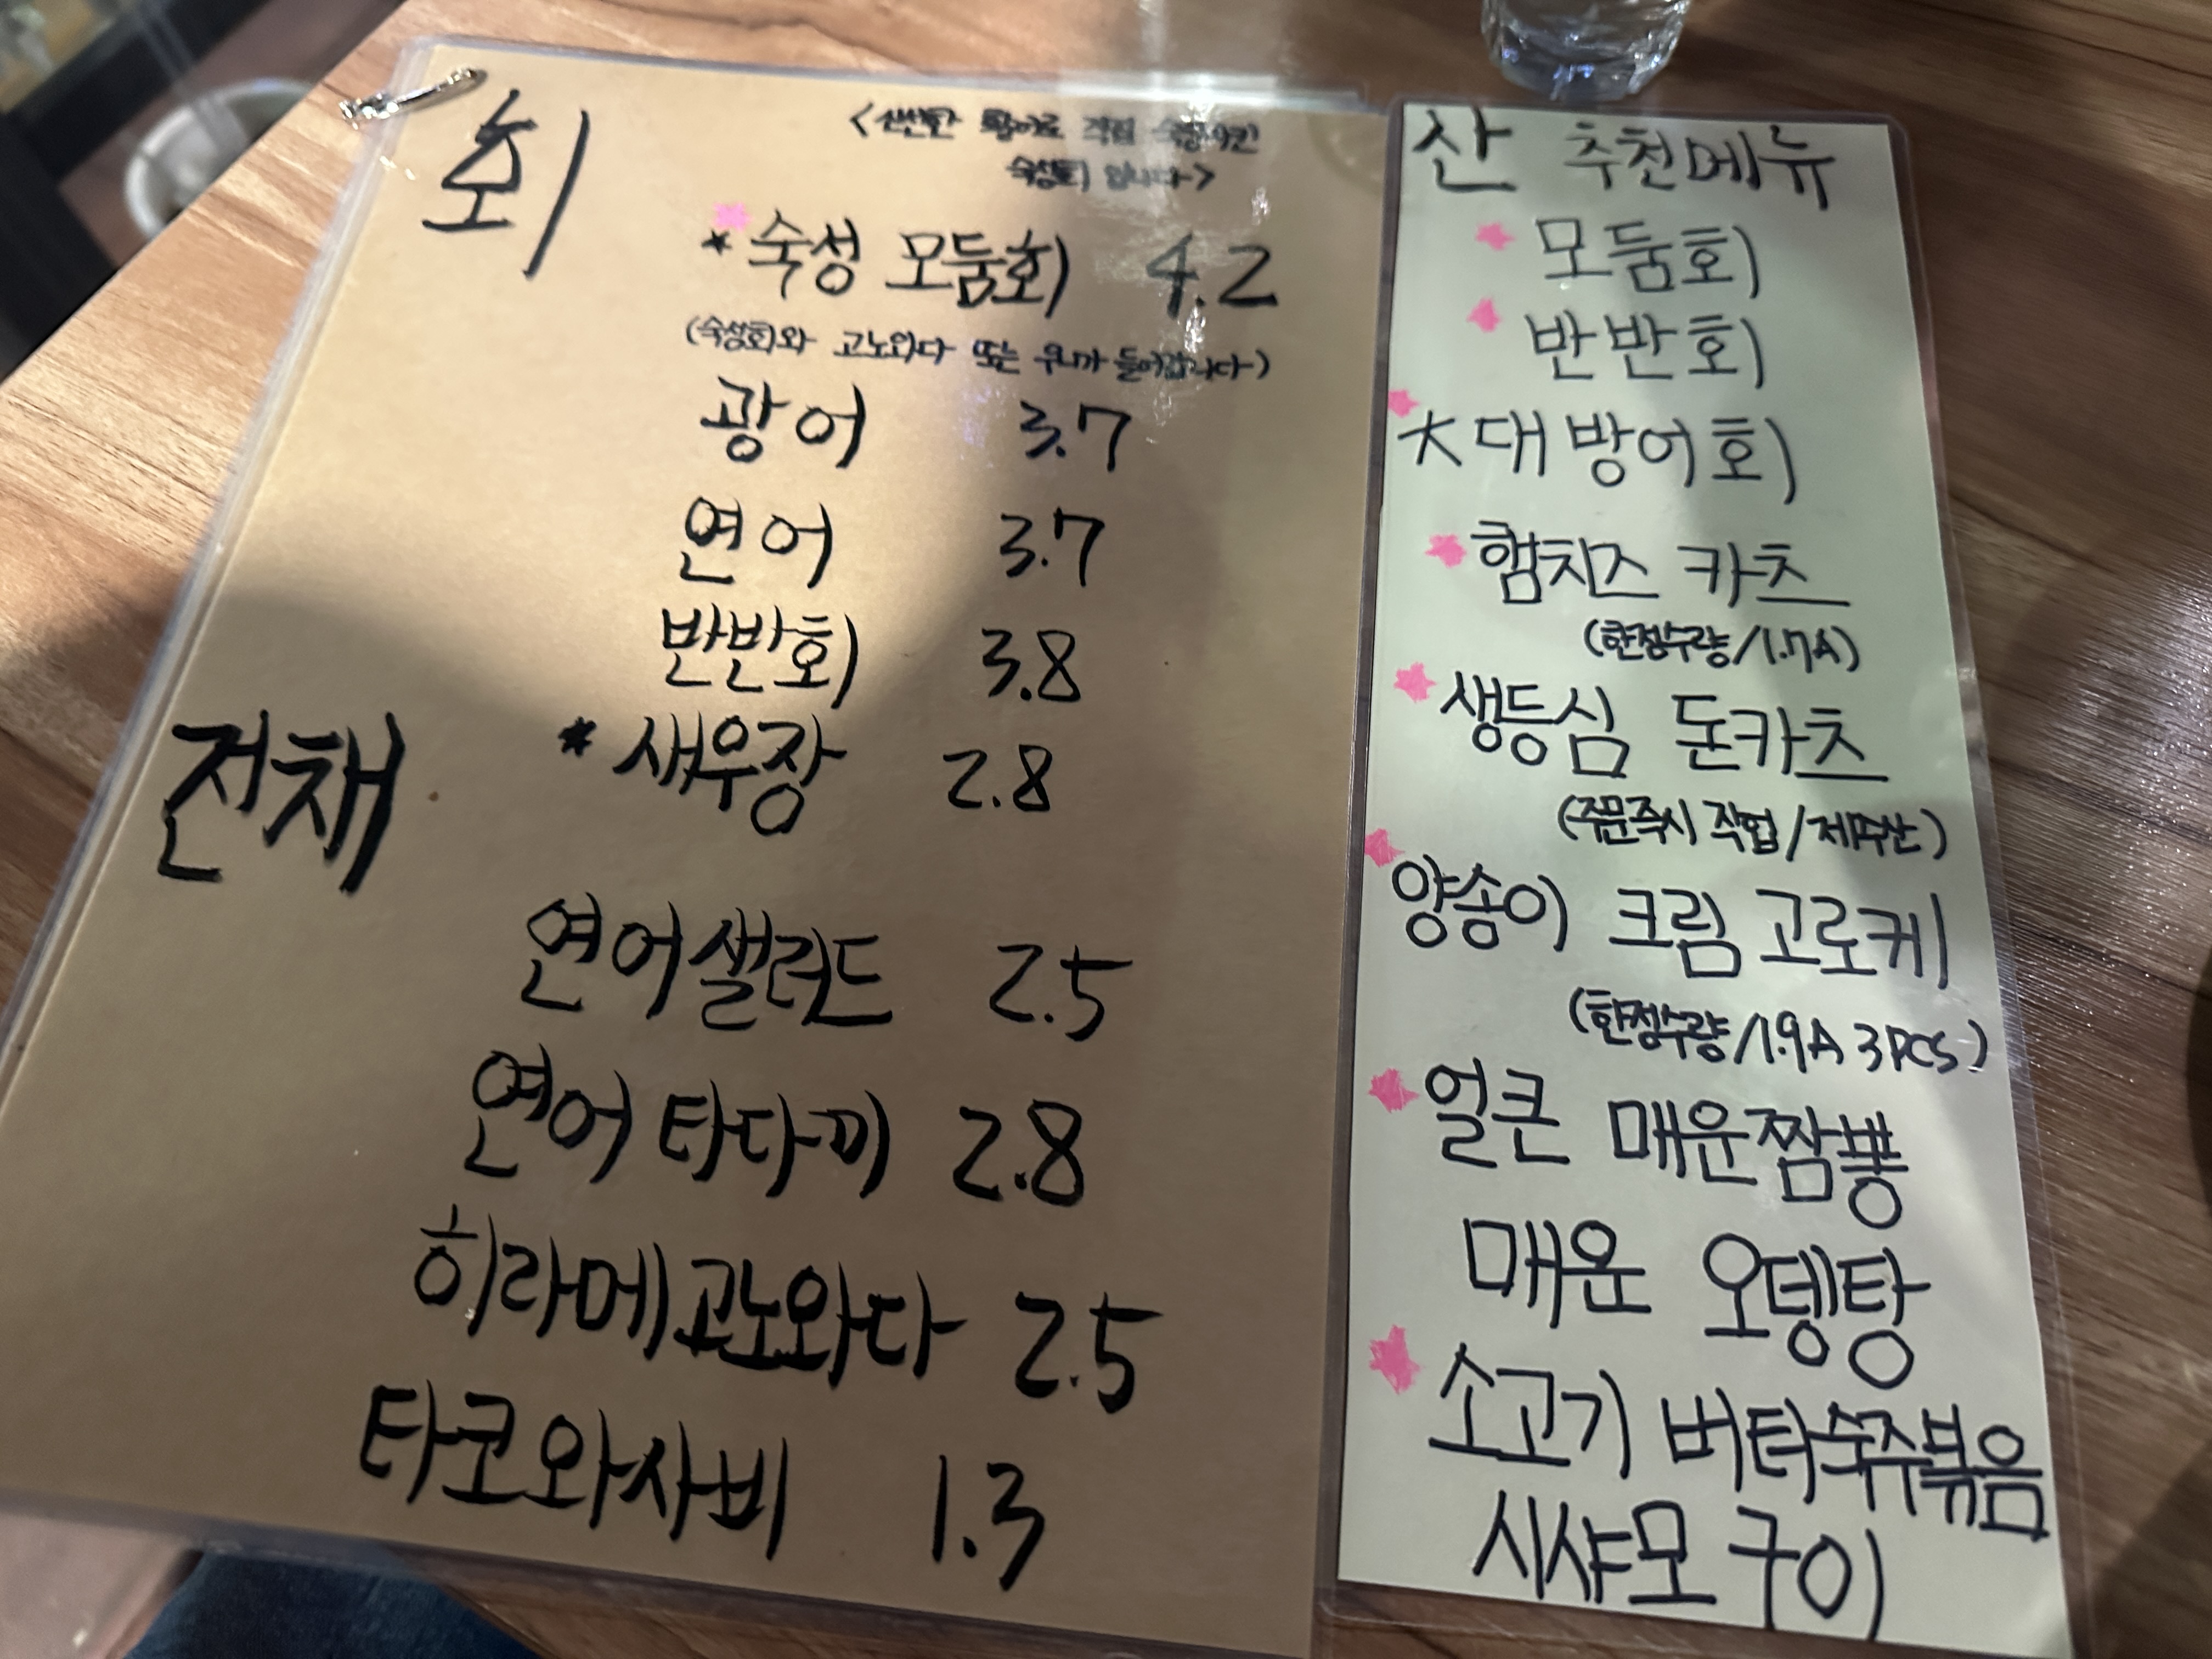 회
<신선한 활어로 직접 숙성시킨
숙성회 입니다>
* 숙성 모둠회 4.2
(숙성회와 고노와다 또는 우니가 들어갑니다)
광어 3.7
연어 3.7
반반회 3.8
전채
* 새우장 2.8
연어샐러드 2.5
연어 타다끼 2.8
히라메 고노와다 2.5
타코와사비 1.3
산 추천메뉴
모둠회
반반회
大대방어회
햄치즈 카츠
(한정수량/1.7A)
생등심 돈카츠
(주문즉시 작업/제주산)
양송이 크림 고로케
(한정수량/1.9A 3PCS)
얼큰 매운짬뽕
매운 오뎅탕
소고기 버터숙주볶음
시샤모 구이